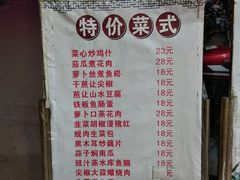 特价菜式
菜心炒鸡什 23元
茄瓜煮花肉 28元
萝卜丝煮鱼崧 18元
干煎让尖椒 18元
煎让山水豆腐 18元
铁板鱼肠蛋 18元
萝卜口蒸花肉 28元
韭菜胡椒浸猪红 18元
蚬肉生菜包 18元
黑木耳炒藕片 18元
蒜子焖南瓜 18元
豉汁蒸水库鱼腩 18元
尖椒大蒜爆烧肉 元